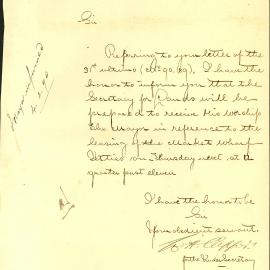 Sir
Referring to your letter of the
31st ultimo (90.89), I have the
honor to inform you that the
Secretary for Lands will be
prepared to receive His Worship
the Mayor in reference to the
leasing of the Market Wharf
on Thursday next at a
quarter past eleven.
I have the honor to be
Sir
Your obedient servant.
for the Under Secretary
Mayor informed